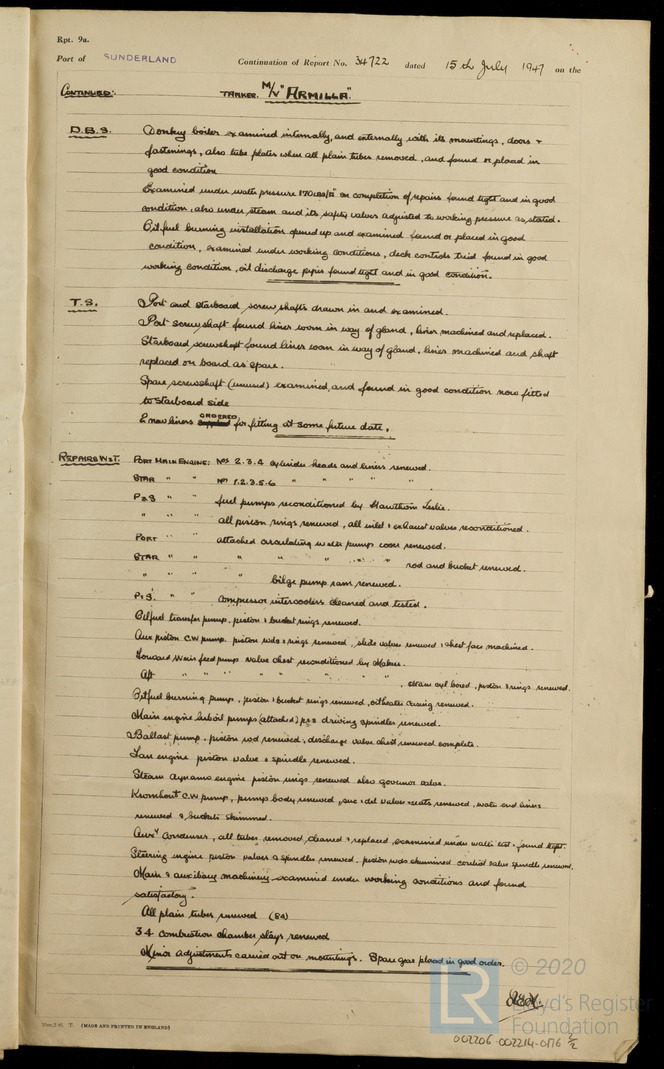 Rpt. 9a.
Port of SUNDERLAND Continuation of Report No. 34722 dated 15th July 1947 on the
CONTINUED:- TANKER. M/V "ARMILLA"
D.B.S. Donkey boiler examined internally, and externally with its mountings, doors &
fastenings, also tube plates when all plain tubes removed, and found or placed in
good condition
Examined under water pressure 170 lbs/□" on completion of repairs found tight and in good
condition, also under steam and its safety valves adjusted to working pressure as stated.
Oil fuel burning installation opened up and examined found or placed in good
condition, examined under working conditions, deck controls tried found in good
working condition, oil discharge pipes found tight and in good condition.
T.S. Port and starboard screw shafts drawn in and examined.
Port screwshaft found liner worn in way of gland, liner machined and replaced.
Starboard screwshaft found liner worn in way of gland, liner machined and shaft
replaced on board as spare.
Spare screwshaft (unused) examined, and found in good condition now fitted
to starboard side
2 new liners ORDERED for fitting at some future date.
REPAIRS W&T. PORT MAIN ENGINE: Nos 2.3.4 cylinder heads and liners renewed.
STAR " " Nos 1.2.3.5.6 " " " " "
P&S " " fuel pumps reconditioned by Hawthorn Leslie.
" " " all piston rings renewed, all inlet & exhaust valves reconditioned.
PORT " " attached circulating water pumps cover renewed.
STAR " " " " " " " rod and bucket renewed.
" " " " bilge pump ram renewed.
P&S. " " Compressor intercoolers cleaned and tested.
Oilfuel transfer pump, piston & bucket rings renewed.
Aux piston C.W pump. piston rods & rings renewed, slide valve renewed & chest face machined.
Forward Weirs feed pump valve chest reconditioned by Makers.
Aft " " " " " " " " , steam cyl bored, piston & rings renewed.
Oilfuel burning pump, piston & bucket rings renewed, oilheater casing renewed.
Main engine lub oil pumps (attached) p&s driving spindles renewed.
Ballast pump, piston rod renewed, discharge valve chest renewed complete.
Fan engine piston valve & spindle renewed.
Steam dynamo engine piston rings renewed also governor valve.
Kromhout C.W pump, pump body renewed, suc & del valve seats renewed, water end liners
renewed & buckets skimmed.
Auxy Condenser, all tubes removed, cleaned & replaced, examined under water test & found tight.
Steering engine piston valves & spindles renewed, piston rods skimmed control valve spindle renewed.
Main & auxiliary machinery examined under working conditions and found
satisfactory.
All plain tubes renewed (84)
34 combustion chamber stays renewed
Minor adjustments carried out on mountings. Spare gear placed in good order.
(MADE AND PRINTED IN ENGLAND)
LR © 2020
Lloyd's Register
Foundation
002206-002214-0176 2/2